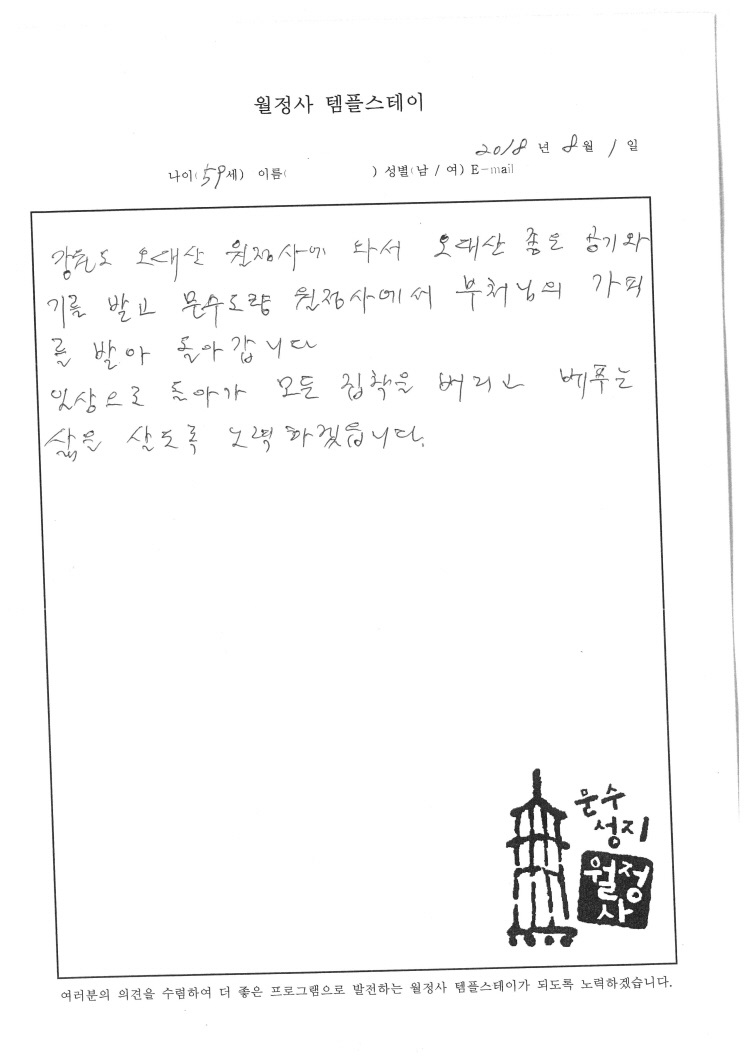 월정사 템플스테이
2018 년 8월 1 일
나이(59세) 이름( ) 성별(남 / 여) E-mail
강원도 오대산 월정사에 와서 오대산 좋은 공기와
기를 받고 문수도량 월정사에서 부처님의 가피
를 받아 돌아갑니다
일상으로 돌아가 모든 집착을 버리고 베푸는
삶을 살도록 노력하겠읍니다.
문수
성지
월정
사
여러분의 의견을 수렴하여 더 좋은 프로그램으로 발전하는 월정사 템플스테이가 되도록 노력하겠습니다.